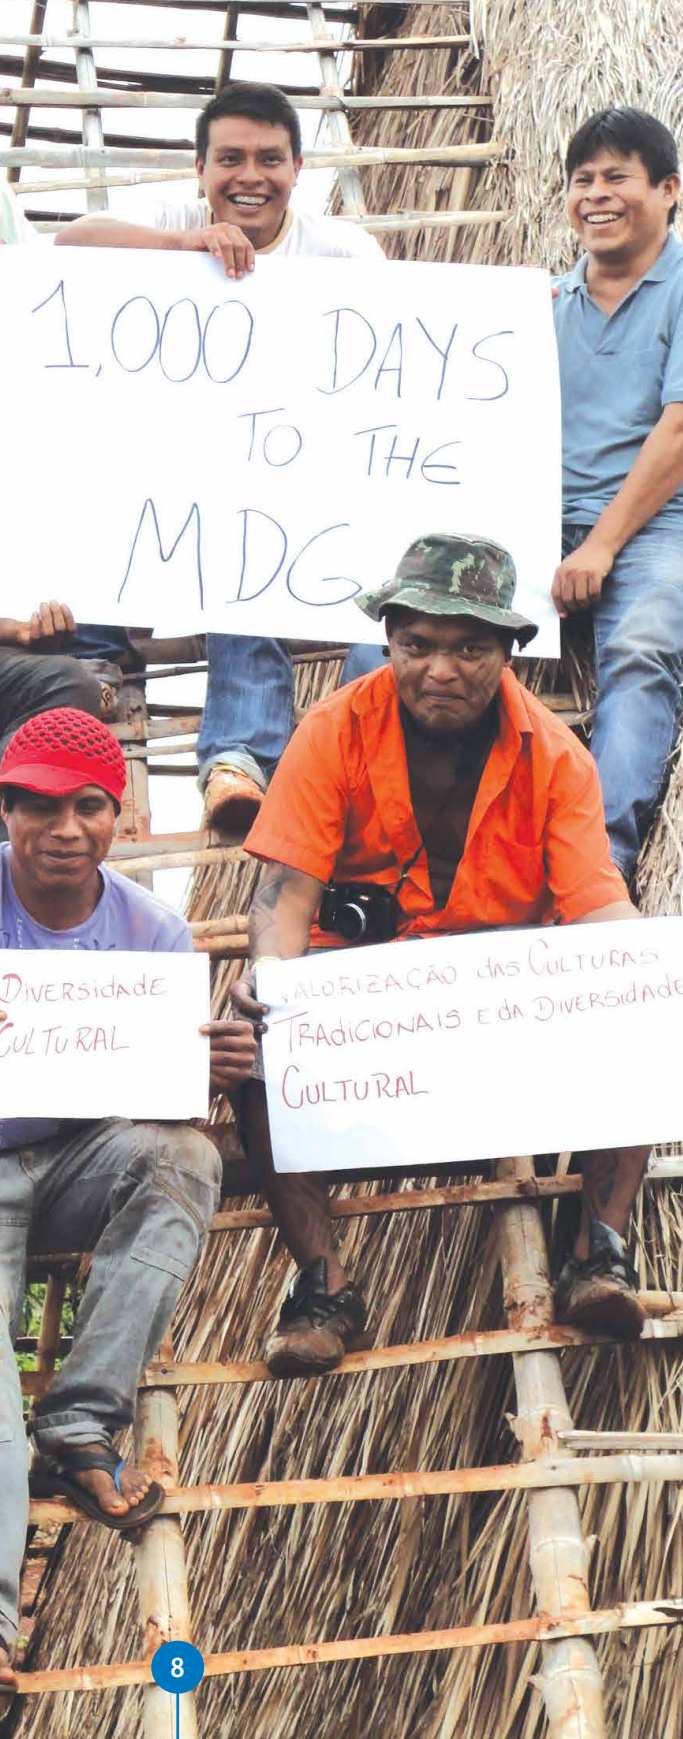 1,000 DAYS
TO THE
MDG
DIVERSIDADE
CULTURAL
VALORIZAÇÃO das CULTURAS
TRADICIONAIS E da DIVERSIDADE
CULTURAL
8